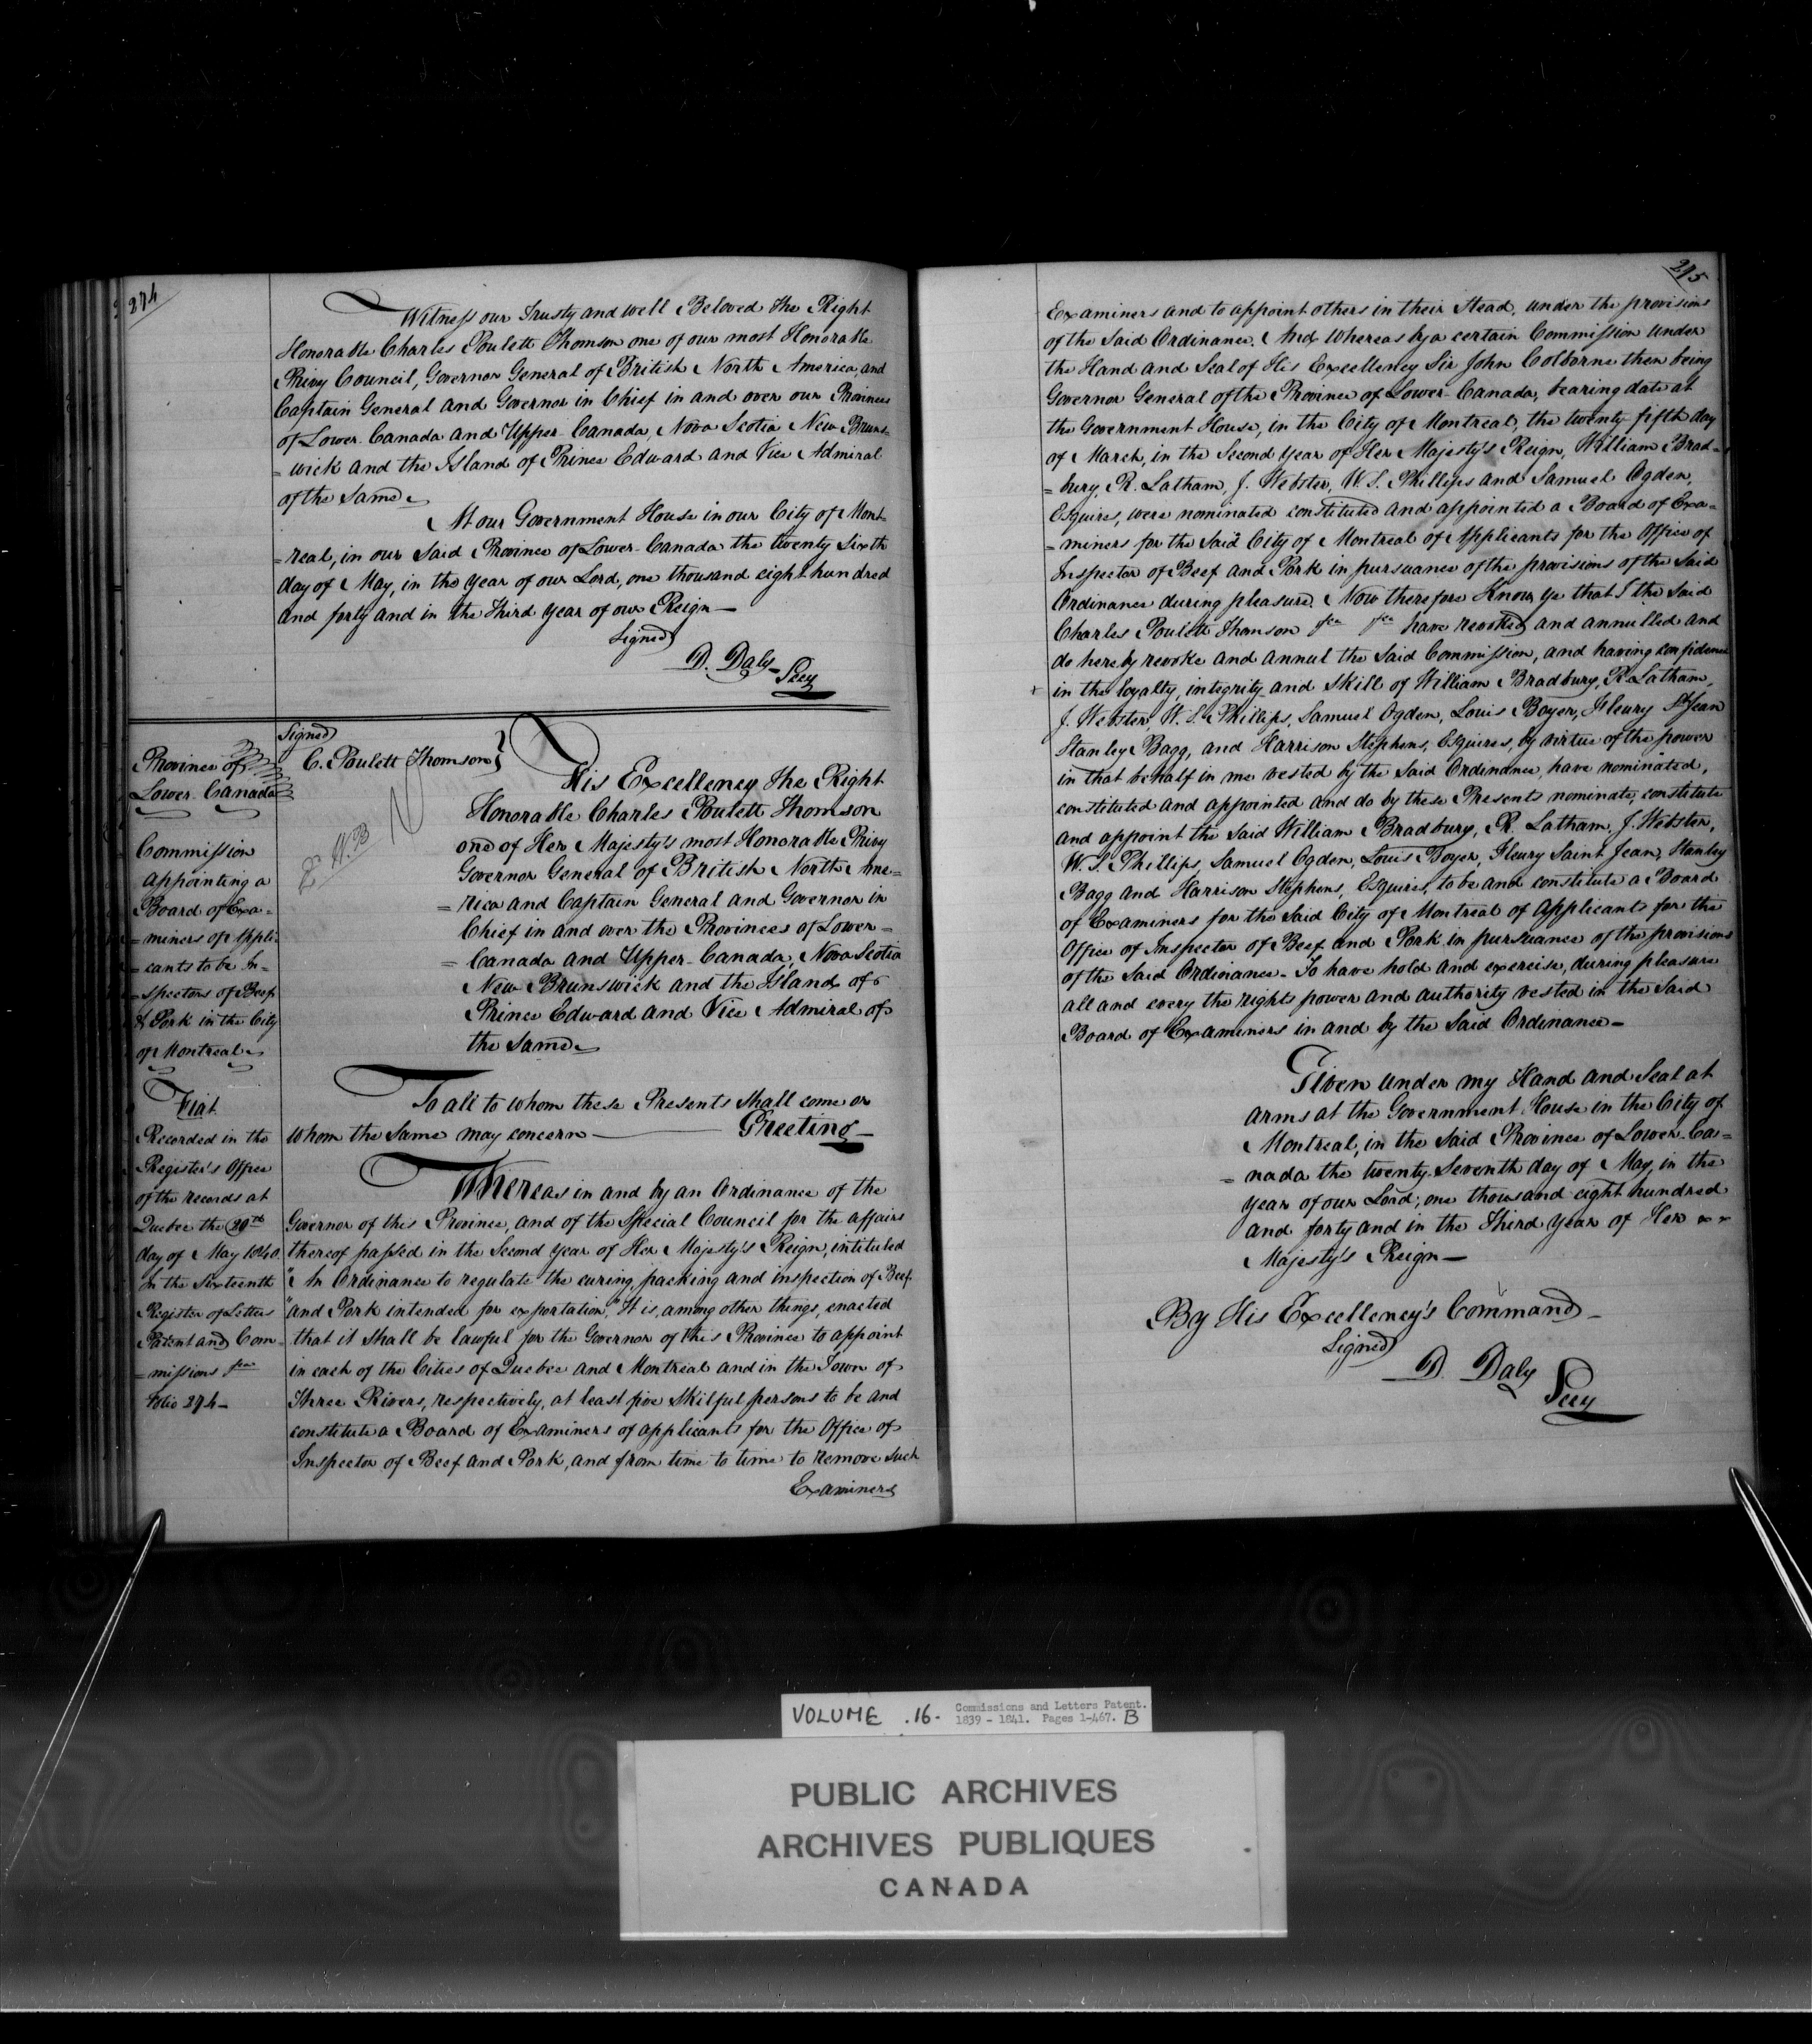 274
Witness our Trusty and well Beloved the Right
Honorable Charles Poulett Thomson one of our most Honorable
Privy Council, Governor General of British North America, and
Captain General and Governor in Chief in and over our Provinces
of Lower-Canada and Upper-Canada, Nova Scotia New Bruns=
=wick and the Island of Prince Edward and Vice Admiral
of the Same
At our Government House in our City of Mont=
=real, in our Said Province of Lower-Canada the twenty Sixth
day of May, in the year of our Lord, one thousand eight hundred
and forty and in the Third year of our Reign—
Signed
D. Daly
Secy
Province of
Lower-Canada
Commission
appointing a
Board of Exa=
=miners of Appli=
=cants to be In=
=spectors of Beef
& Pork in the City
of Montreal
Fiat
Recorded in the
Register's Office
of the records at
Quebec the 29th
day of May 1840
in the Sixteenth
Register of Letters
Patent and Com=
=missions
Folio 274—
Signed
C. Poulett Thomson}
His Excellency the Right
Honorable Charles Poulett Thomson
one of Her Majesty's most Honorable Privy
Governor General of British North Ame=
=rica and Captain General and Governor in
Chief in and over the Provinces of Lower=
=Canada and Upper-Canada, Nova Scotia
New Brunswick and the Island of
Prince Edward and Vice Admiral of
the Same
To all to whom these Presents Shall come or
whom the Same may concern — Greeting—
Whereas in and by an Ordinance of the
Governor of this Province, and of the Special Council for the affairs
thereof passed in the Second year of Her Majesty's Reign, intituled
"An Ordinance to regulate the curing, packing and inspection of Beef
"and Pork intended for exportation," It is, among other things, enacted
that it Shall be lawful for the Governor of this Province to appoint
in each of the Cities of Quebec and Montreal and in the Town of
Three Rivers, respectively, at least five Skilful persons to be and
constitute a Board of Examiners of applicants for the Office of
Inspector of Beef and Pork, and from time to time to remove such
Examiners
275
Examiners and to appoint others in their Stead, under the provisions
of the Said Ordinance. And Whereas by a certain Commission under
the Hand and Seal of His Excellency Sir John Colborne then being
Governor General of the Province of Lower-Canada, bearing date at
the Government House, in the City of Montreal, the twenty fifth day
of March, in the Second year of Her Majesty's Reign, William Brad=
=bury, R. Latham, J. Webster, W. S. Phillips and Samuel Ogden,
Esquires, were nominated constituted and appointed a Board of Exa=
=miners for the Said City of Montreal of Applicants for the Office of
Inspector of Beef and Pork in pursuance of the provisions of the Said
Ordinance during pleasure. Now therefore Know ye that I the Said
Charles Poulett Thomson &ca &ca have revoked and annulled and
do hereby revoke and annul the Said Commission, and having confidence
in the loyalty, integrity and Skill of William Bradbury, R. Latham,
J. Webster, W. S. Phillips, Samuel Ogden, Louis Boyer, Fleury St Jean
Stanley Bagg, and Harrison Stephens, Esquires, by virtue of the power
in that behalf in me vested by the Said Ordinance, have nominated,
constituted and appointed and do by these Presents nominate, constitute
and appoint the Said William Bradbury, R. Latham, J. Webster,
W. S. Phillips, Samuel Ogden, Louis Boyer, Fleury Saint Jean, Stanley
Bagg and Harrison Stephens, Esquires, to be and constitute a Board
of Examiners for the Said City of Montreal of Applicants for the
Office of Inspector of Beef and Pork in pursuance of the provisions
of the Said Ordinance. To have hold and exercise, during pleasure
all and every the rights power and authority vested in the Said
Board of Examiners in and by the Said Ordinance—
Given under my Hand and Seal at
arms at the Government House in the City of
Montreal, in the Said Province of Lower-Ca=
=nada the twenty-Seventh day of May, in the
year of our Lord, one thousand eight hundred
and forty and in the Third year of Her
Majesty's Reign—
By His Excellency's Command—
Signed
D. Daly
Secy
VOLUME .16. Commissions and Letters Patent.
1839 - 1841. Pages 1-467. B
PUBLIC ARCHIVES
ARCHIVES PUBLIQUES
CANADA